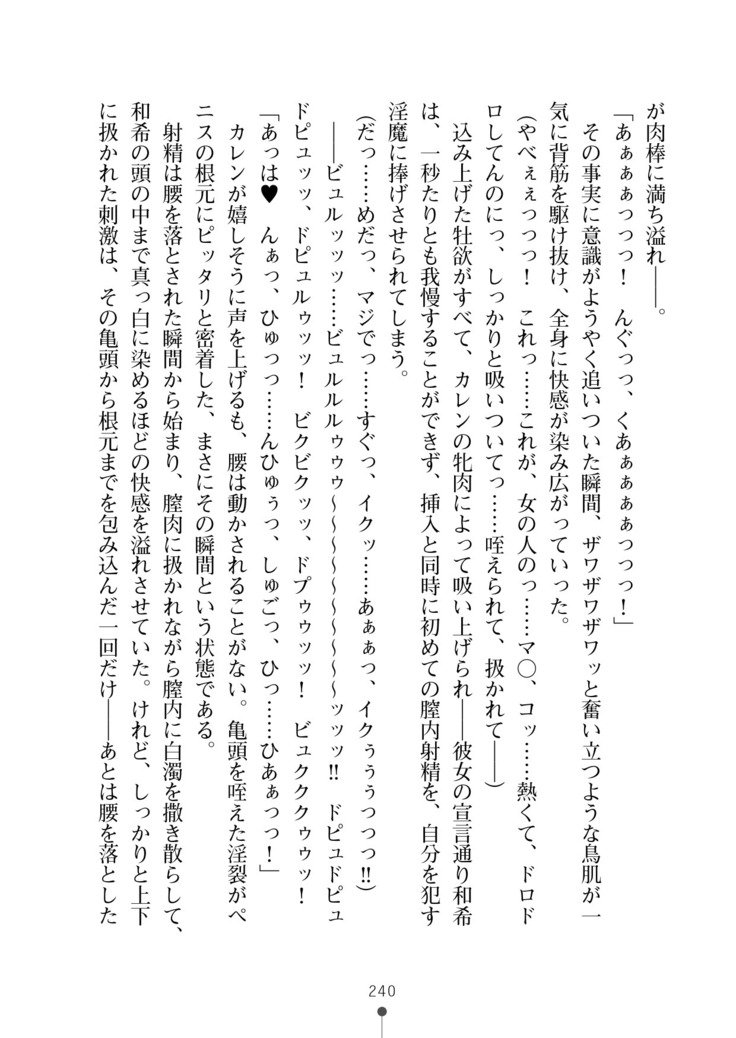 が肉棒に満ち溢れ――。
「あぁぁぁっっっ！　んぐっっ、くあぁぁぁぁっっっ！」
その事実に意識がようやく追いついた瞬間、ザワザワザワッと奮い立つような鳥肌が一
気に背筋を駆け抜け、全身に快感が染み広がっていった。
(やべぇぇっっっ！　これっ……これが、女の人のっ……マ〇、コッ……熱くて、ドロド
ロしてんのにっ、しっかりと吸いついてっ……咥えられて、扱かれて――)
込み上げた牡欲がすべて、カレンの牝肉によって吸い上げられ――彼女の宣言通り和希
は、一秒たりとも我慢することができず、挿入と同時に初めての膣内射精を、自分を犯す
淫魔に捧げさせられてしまう。
(だっ……めだっ、マジでっ……すぐっ、イクッ……あぁぁっ、イクぅぅぅっっっ!!)
――ビュルッッッ……ビュルルルゥゥゥ～～～～～～～～ッッッ!!　ドピュドピュ
ドピュッッ、ドピュルゥッッ！　ビクビクッッ、ドプゥゥッッ！　ビュククククゥゥッ！
「あっは♥　んぁっ、ひゅっっ……んひゅぅっ、しゅごっ、ひっ……ひあぁっっ！」
カレンが嬉しそうに声を上げるも、腰は動かされることがない。亀頭を咥えた淫裂がペ
ニスの根元にピッタリと密着した、まさにその瞬間という状態である。
射精は腰を落とされた瞬間から始まり、膣肉に扱かれながら膣内に白濁を撒き散らして、
和希の頭の中まで真っ白に染めるほどの快感を溢れさせていた。けれど、しっかりと上下
に扱かれた刺激は、その亀頭から根元までを包み込んだ一回だけ――あとは腰を落とした
240